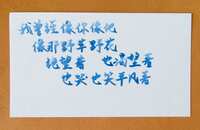 我曾经像你像他
像那野草野花
绝望着 也渴望着
也哭也笑平凡着